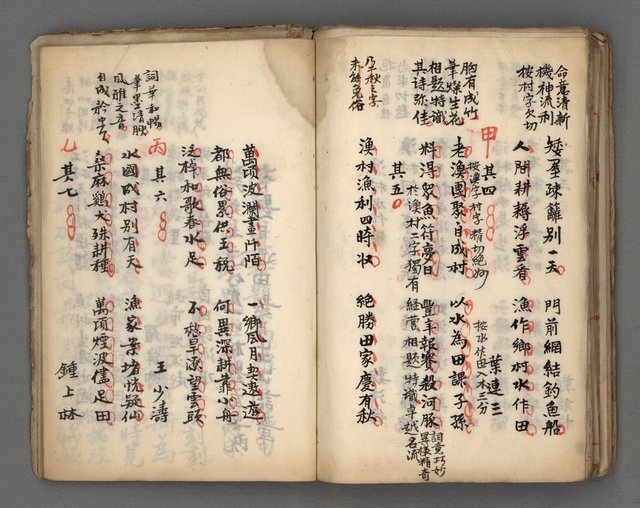 命意清新
機神流利
按村字欠切
矮屋疎籬別一天　門前網結釣魚船
人間耕耨浮雲看　漁作鄉村水作田
甲　其四　葉連三
按漁字村字精切絕妙
按水作田入木三分
胸有成竹
筆燦生花
相題特識
其詩弥佳
老漁團聚自成村　以水為田課子孫
料得眾魚符夢日　豐年報賽殺河豚
詞意巧妙
異樣精奇
其五
於漁村二字獨有
經營相題特識卓越名流
漁村漁利四時收　絕勝田家慶有秋
未能免俗
萬頃波瀾畫阡陌　一鄉風月契遨遊
都無俗累供王稅　何異深耕靠小舟
泛棹和歌春水足　不愁旱潦望雲頭
丙　其六　王少濤
詞華和暢
筆墨清腴
風雅之音
水國成村別有天　漁家業堵恍疑仙
桑麻鷄犬殊耕種　萬頃煙波儘足田
乙　其七　鍾上林